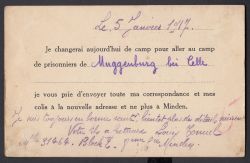 Le 5 Janvier 1917.
Je changerai aujourd'hui de camp pour aller au camp
de prisonniers de Muggenburg bei Celle
je vous prie d'envoyer toute ma correspondance et mes
colis à la nouvelle adresse et ne plus à Minden.
Je suis toujours en bonne santé. bientôt plus de détails,
Votre
31464. Block